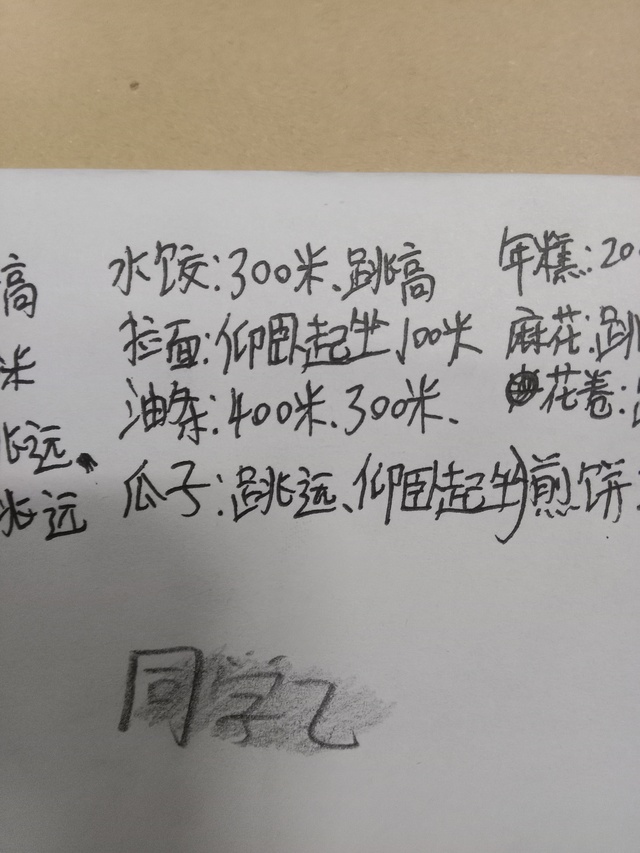 高 水饺:300米、跳高 年糕:20
米 拉面:仰卧起坐、100米 麻花:跳
跳远、 油条:400米、300米、 花卷:
跳远 瓜子:跳远、仰卧起坐 煎饼:
同学乙